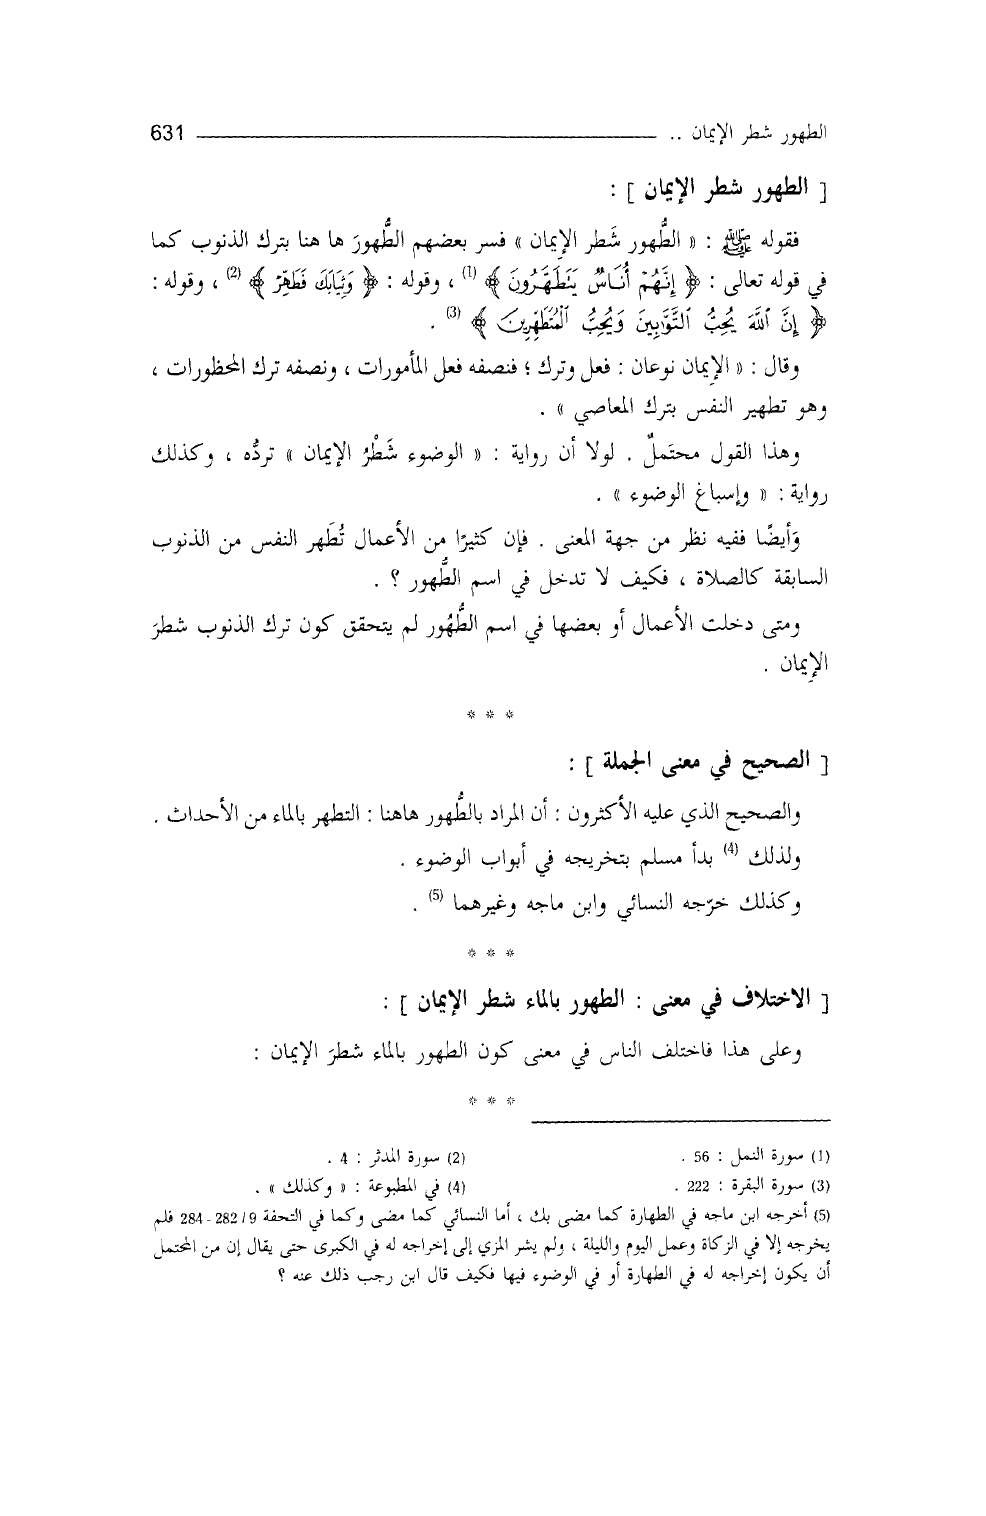 الطهور شطر الإيمان .. 631
[ الطهور شطر الإيمان ] :
فقوله ﷺ : « الطُّهور شَطر الإيمان » فسر بعضهم الطُّهورَ ها هنا بترك الذنوب كما
في قوله تعالى : ﴿ إِنَّهُمْ أُنَاسٌ يَتَطَهَّرُونَ ﴾ (1) ، وقوله : ﴿ وَثِيَابَكَ فَطَهِّرْ ﴾ (2) ، وقوله :
﴿ إِنَّ ٱللَّهَ يُحِبُّ ٱلتَّوَّٰبِينَ وَيُحِبُّ ٱلْمُتَطَهِّرِينَ ﴾ (3) .
وقال : « الإيمان نوعان : فعل وترك ؛ فنصفه فعل المأمورات ، ونصفه ترك المحظورات ،
وهو تطهير النفس بترك المعاصي » .
وهذا القول محتَملٌ . لولا أن رواية : « الوضوء شَطْرُ الإيمان » تردُّه ، وكذلك
رواية : « وإسباغ الوضوء » .
وَأيضًا ففيه نظر من جهة المعنى . فإن كثيرًا من الأعمال تُطَهر النفس من الذنوب
السابقة كالصلاة ، فكيف لا تدخل في اسم الطُّهور ؟ .
ومتى دخلت الأعمال أو بعضها في اسم الطُّهُور لم يتحقق كون ترك الذنوب شطرَ
الإيمان .
* * *
[ الصحيح في معنى الجملة ] :
والصحيح الذي عليه الأكثرون : أن المراد بالطُّهور هاهنا : التطهر بالماء من الأحداث .
ولذلك (4) بدأ مسلم بتخريجه في أبواب الوضوء .
وكذلك خرّجه النسائي وابن ماجه وغيرهما (5) .
* * *
[ الاختلاف في معنى : الطهور بالماء شطر الإيمان ] :
وعلى هذا فاختلف الناس في معنى كون الطهور بالماء شطرَ الإيمان :
* * *
(1) سورة النمل : 56 . (2) سورة المدثر : 4 .
(3) سورة البقرة : 222 . (4) في المطبوعة : « وكذلك » .
(5) أخرجه ابن ماجه في الطهارة كما مضى بك ، أما النسائي كما مضى وكما في التحفة 9/ 282 - 284 فلم
يخرجه إلا في الزكاة وعمل اليوم والليلة ، ولم يشر المزي إلى إخراجه له في الكبرى حتى يقال إن من المحتمل
أن يكون إخراجه له في الطهارة أو في الوضوء فيها فكيف قال ابن رجب ذلك عنه ؟